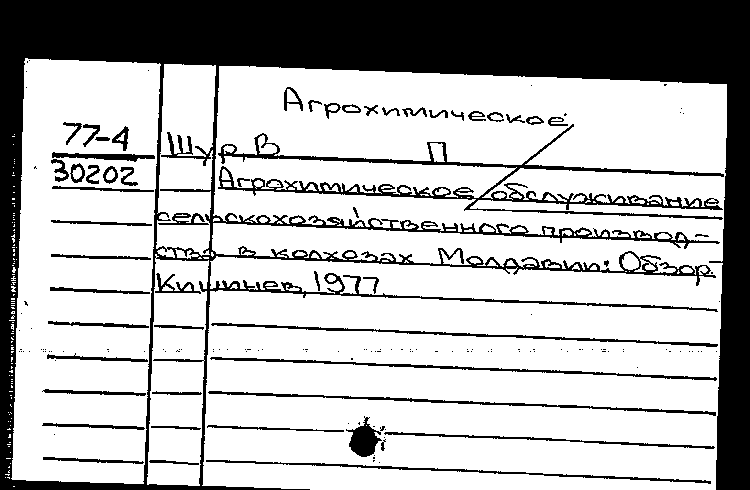 Агрохимическое
77-4 Шур, В П
30202 Агрохимическое обслуживание
сельскохозяйственного производ-
ства в колхозах Молдавии: Обзор
Кишинев, 1977